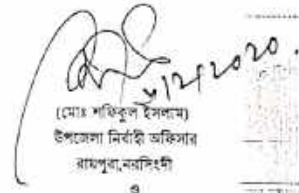 (মোঃ শফিকুল ইসলাম)
উপজেলা নির্বাহী অফিসার
রায়পুরা,নরসিংদী
ও